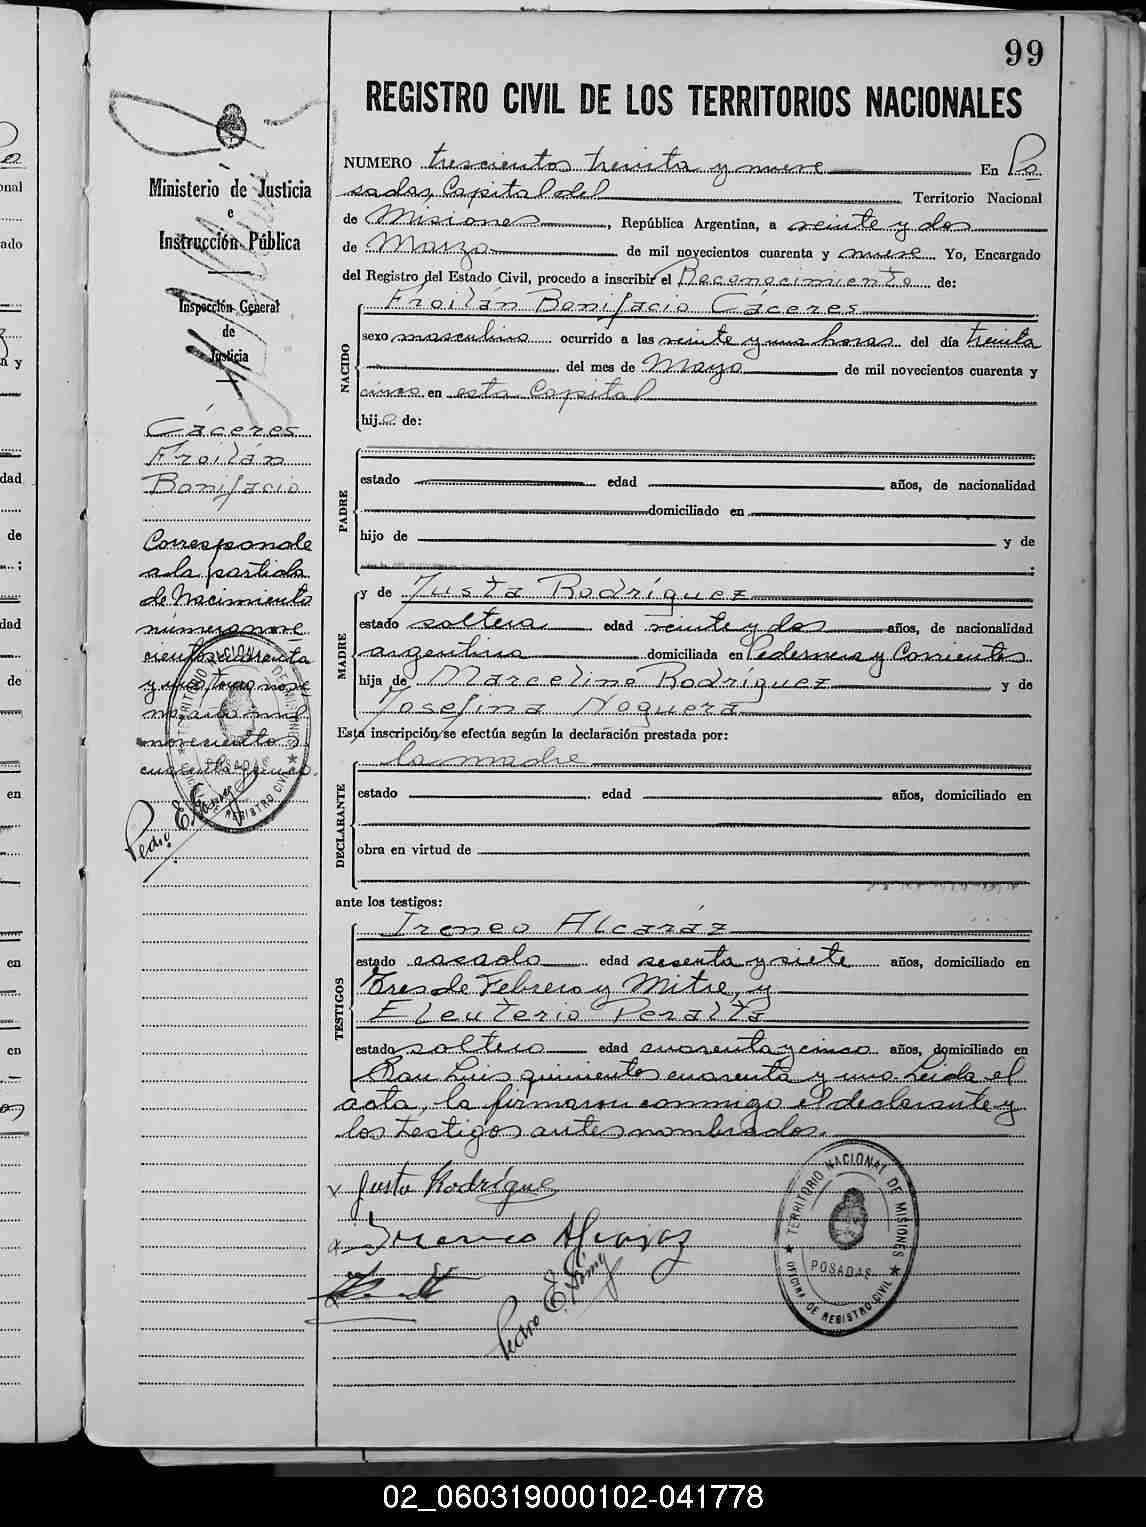 99
REGISTRO CIVIL DE LOS TERRITORIOS NACIONALES
Ministerio de Justicia
e
Instrucción Pública
Inspección General
de
Justicia
Cáceres
Froilán
Bonifacio
Corresponde
a la partida
de Nacimiento
número nove
cientos cuarenta
y uno, tomo
mil
novecientos
cuarenta y cinco.
NUMERO trescientos treinta y nueve En Po
sadas, Capital del Territorio Nacional
de Misiones, República Argentina, a veinte y dos
de Marzo de mil novecientos cuarenta y nueve Yo, Encargado
del Registro del Estado Civil, procedo a inscribir el Reconocimiento de:
NACIDO
Froilán Bonifacio Cáceres
sexo masculino ocurrido a las veinte y una horas del día treinta
del mes de Mayo de mil novecientos cuarenta y
cinco en esta Capital
hijo de:
PADRE
estado edad años, de nacionalidad
domiciliado en
hijo de y de
MADRE
y de Justa Rodríguez
estado soltera edad veinte y dos años, de nacionalidad
argentina domiciliada en Pedernera y Corrientes
hija de Marcelino Rodríguez y de
Josefina Noguera
Esta inscripción se efectúa según la declaración prestada por:
DECLARANTE
la madre
estado edad años, domiciliado en
obra en virtud de
ante los testigos:
TESTIGOS
Ireneo Alcaráz
estado casado edad sesenta y siete años, domiciliado en
Tres de Febrero y Mitre, y
Eleuterio Peralta
estado soltero edad cuarenta y cinco años, domiciliado en
San Luis quinientos cuarenta y uno Leída el
acta, la firmaron conmigo el declarante y
los testigos antes nombrados.
Justa Rodrígue
Ireneo Alcaraz
Pedro E.
TERRITORIO NACIONAL DE MISIONES
POSADAS
OFICINA DE REGISTRO CIVIL
02_060319000102-041778